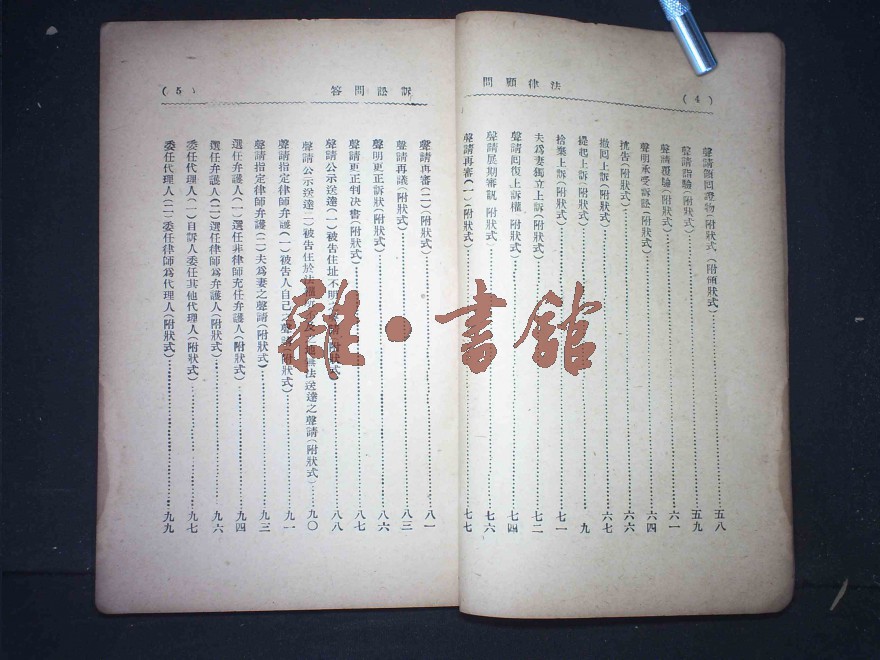 法律顧問
(4)
聲請領回證物(附狀式)(附領狀式)……五八
聲請詣驗(附狀式)……五九
聲請覆驗(附狀式)……六一
聲明承受訴訟(附狀式)……六四
抗告(附狀式)……六六
撤回上訴(附狀式)……六七
提起上訴(附狀式)……九
捨棄上訴(附狀式)……七一
夫爲妻獨立上訴(附狀式)……七二
聲請回復上訴權(附狀式)……七四
聲請展期審訊(附狀式)……七六
聲請再審(一)(附狀式)……七七
訴訟問答
(5)
聲請再審(二)(附狀式)……八一
聲請再議(附狀式)……八三
聲明更正訴狀(附狀式)……八六
聲請更正判決書(附狀式)……八七
聲請公示送達(一)被告住址不明(附狀式)……八八
聲請公示送達(二)被告住於法無法送達之聲請(附狀式)……九〇
聲請指定律師弁護(一)被告人自己之聲請(附狀式)……九一
聲請指定律師弁護(二)夫爲妻之聲請(附狀式)……九三
選任弁護人(一)選任非律師充任弁護人(附狀式)……九四
選任弁護人(二)選任律師爲弁護人(附狀式)……九六
委任代理人(一)自訴人委任其他代理人(附狀式)……九七
委任代理人(二)委任律師爲代理人(附狀式)……九九
雜·書館